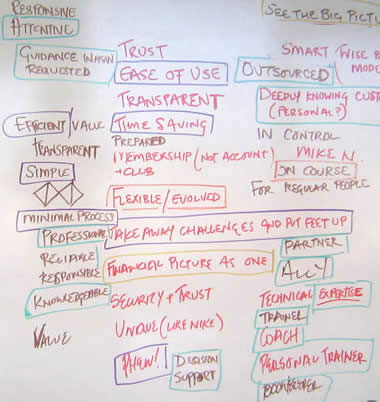 RESPONSIVE
ATTENTIVE
GUIDANCE WHEN
REQUESTED
EFFICIENT/VALUE
TRANSPARENT
SIMPLE
MINIMAL PROCESS
PROFESSIONAL
RELIABLE
RESPONSIBLE
KNOWLEDGEABLE
VALUE
TRUST
EASE OF USE
TRANSPARENT
TIME SAVING
PREPARED
MEMBERSHIP (NOT ACCOUNT)
→CLUB
FLEXIBLE/EVOLVED
TAKE AWAY CHALLENGES AND PUT FEET UP
FINANCIAL PICTURE AS ONE
SECURITY + TRUST
UNIQUE (LIKE NIKE)
PHEW!
DECISION
SUPPORT
SEE THE BIG PICTU
SMART/WISE B
MODE
OUTSOURCED
DEEPLY KNOWING CUST
(PERSONAL?)
IN CONTROL
MIKE N.
ON COURSE
FOR REGULAR PEOPLE
PARTNER
ALLY
TECHNICAL EXPERTISE
TRAINER
COACH
PERSONAL TRAINER
BOOKKEEPER